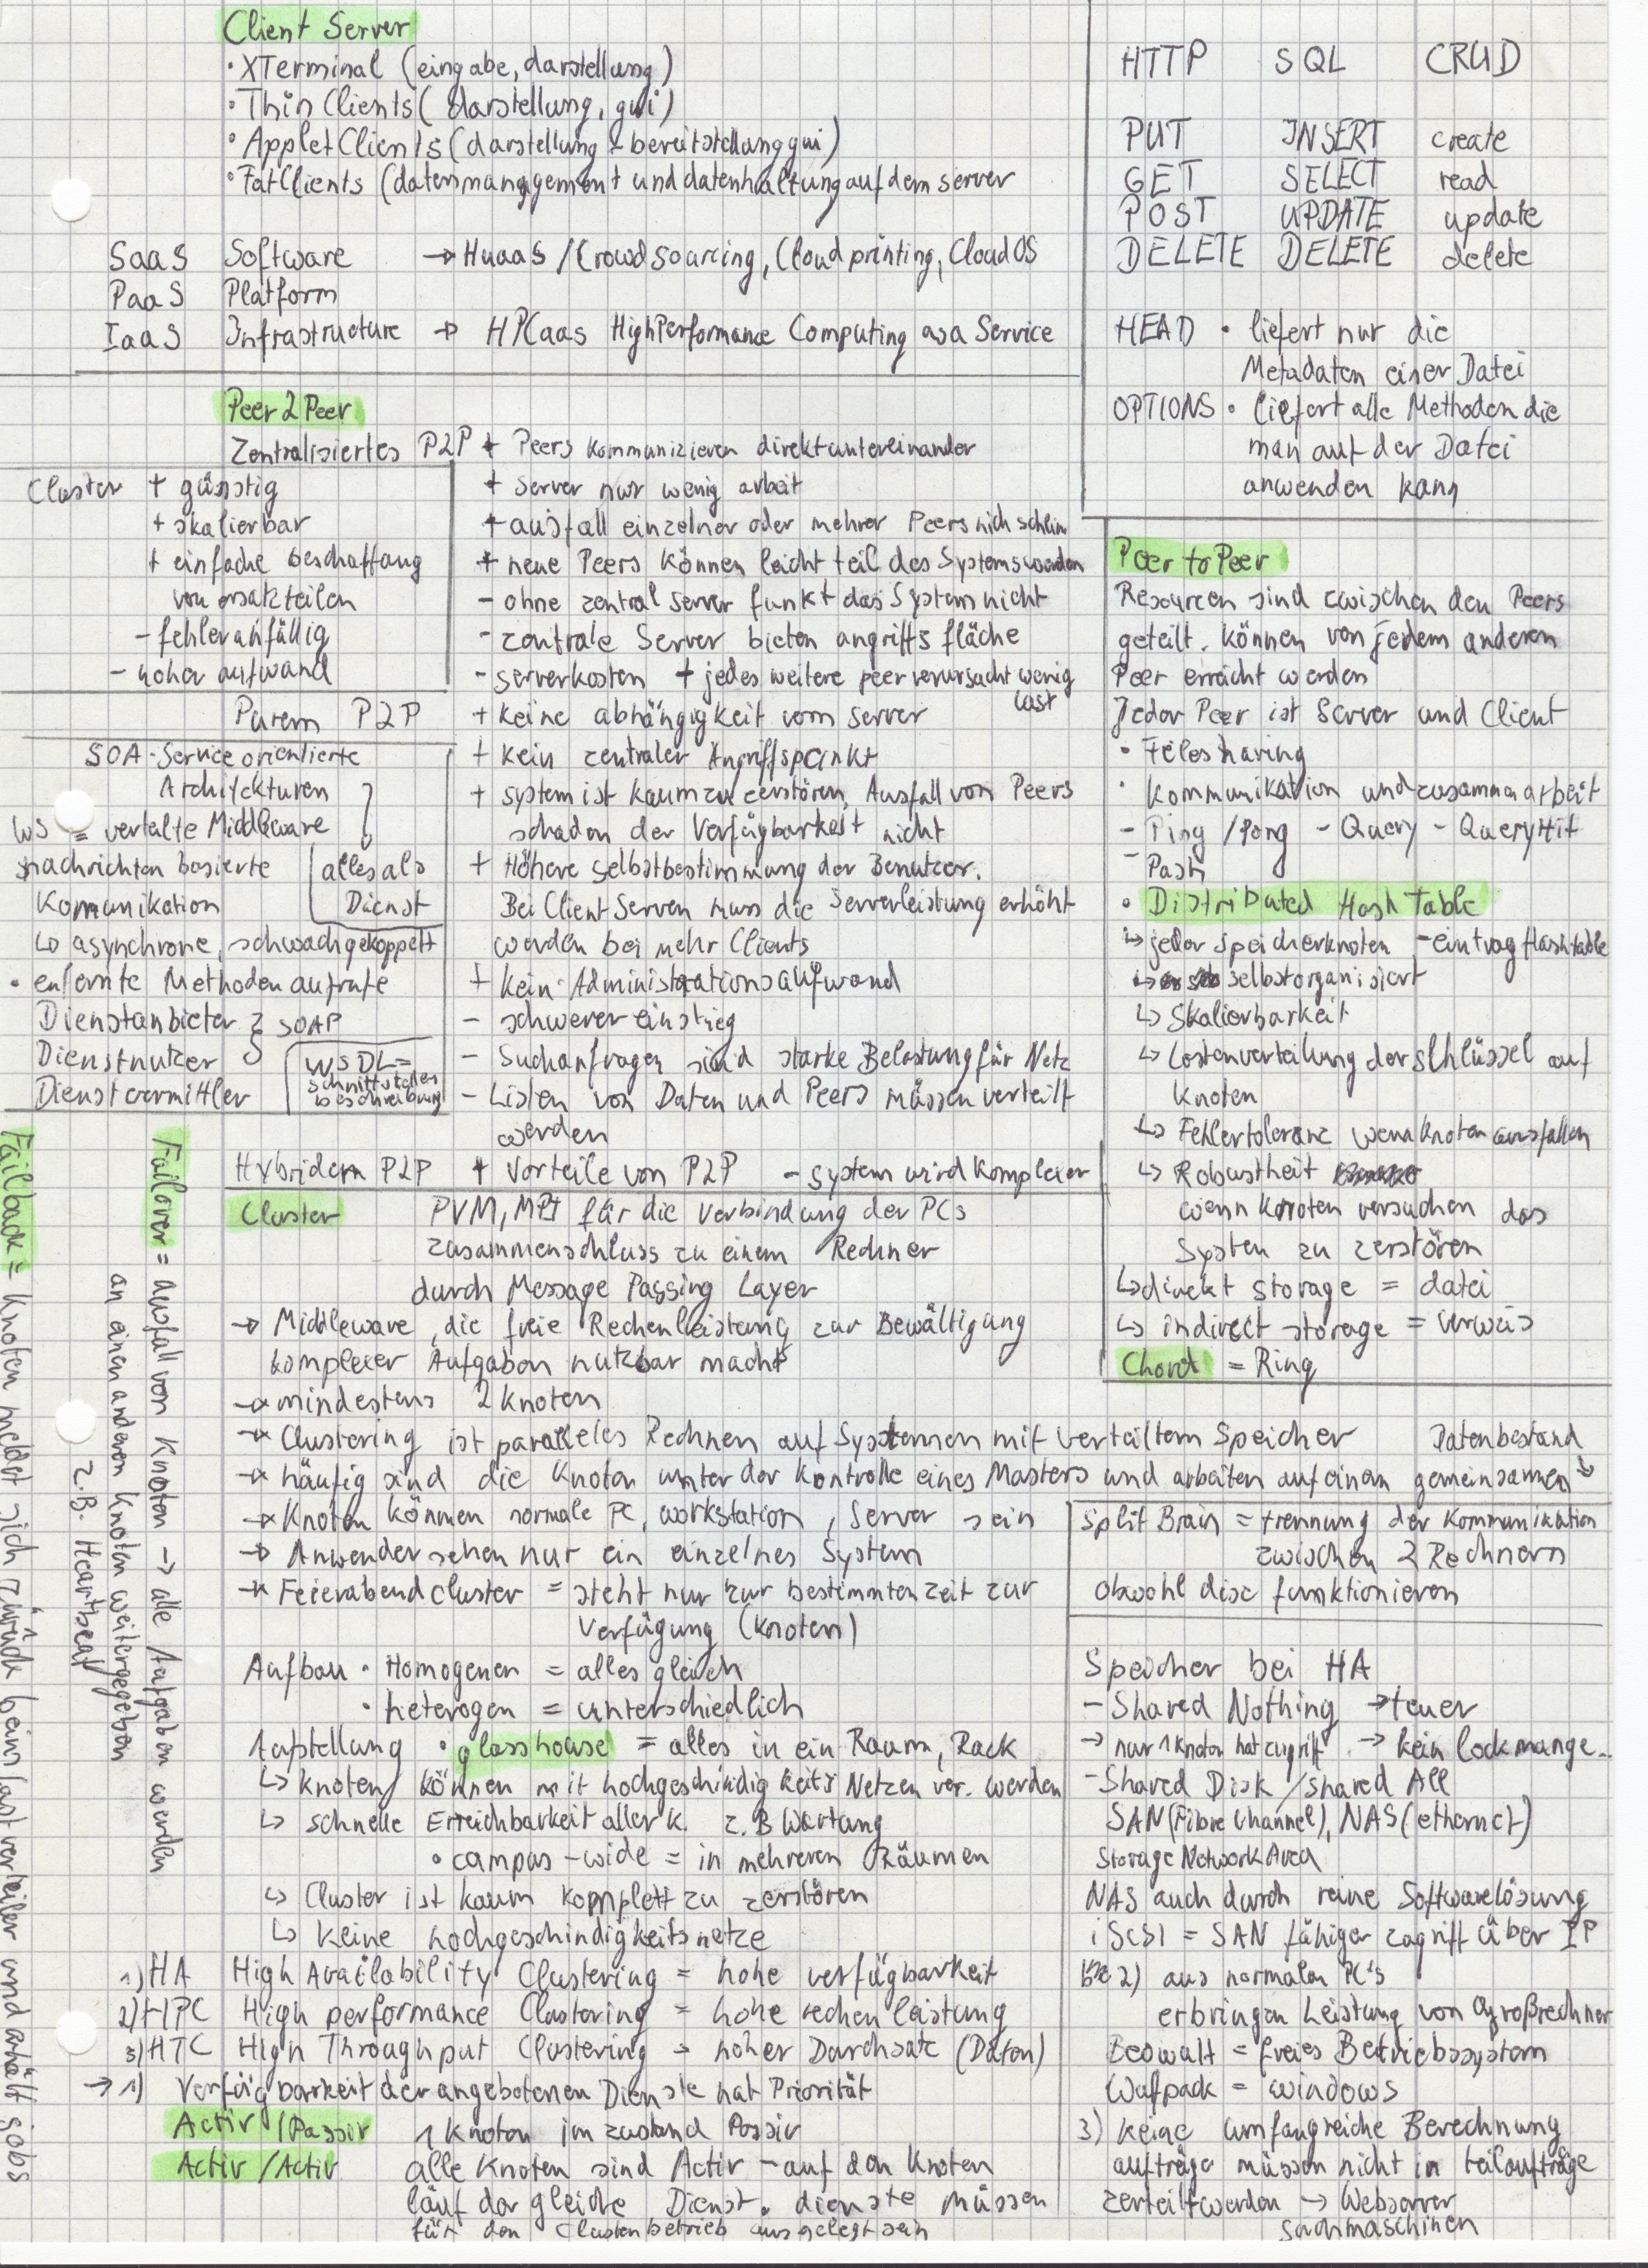 Client Server
• XTerminal (eingabe, darstellung)
• Thin Clients ( darstellung, gui)
• AppletClients (darstellung + bereitstellung gui)
• FatClients (datenmanagement und datenhaltung auf dem server
SaaS Software → Huaas / Crowdsourcing, Cloudprinting, CloudOS
PaaS Platform
IaaS Infrastructure → HPCaas HighPerformance Computing as a Service
HTTP SQL CRUD
PUT INSERT create
GET SELECT read
POST UPDATE update
DELETE DELETE delete
HEAD • liefert nur die
Metadaten einer Datei
OPTIONS • liefert alle Methoden die
man auf der Datei
anwenden kann
Peer 2 Peer
Zentralisiertes P2P + Peers kommunizieren direkt untereinander
+ server nur wenig arbeit
+ ausfall einzelner oder mehrer Peers nich schlim
+ neue Peers können leicht teil des Systems werden
- ohne zentral server funkt das System nicht
- zentrale Server bieten angriffs fläche
- serverkosten + jedes weitere peer verursacht wenig
last
Cluster + günstig
+ skalierbar
+ einfache beschaffung
von ersatzteilen
- fehleranfällig
- hoher aufwand
Purem P2P + keine abhängigkeit vom server
+ kein zentraler Angriffspunkt
+ system ist kaum zu zerstören, Ausfall von Peers
schaden der Verfügbarkeit nicht
+ Höhere selbstbestimmung der Benutzer.
Bei Client Servern muss die Serverleistung erhöht
werden bei mehr Clients
+ kein Administrationsaufwand
- schwerer einstieg
- Suchanfragen sind starke Belastung für Netz
- Listen von Daten und Peers müssen verteilt
werden
SOA - Service orientierte
Architekturen
WS = verteilte Middleware
nachrichten basierte
Komunikation
alles als
Dienst
↳ asynchrone, schwachgekoppelt
• enfernte Methoden aufrufe
Dienstanbieter } SOAP
Dienstnutzer
Dienstvermittler
WSDL =
schnittstellen
beschreibung
Hybridem P2P + Vorteile von P2P - system wird komplexer
Peer to Peer
Resourcen sind zwischen den Peers
geteilt. können von jedem anderen
Peer erreicht werden
Jeder Peer ist Server und Client
• Filesharing
• Kommunikation und zusammenarbeit
- Ping / Pong - Query - QueryHit
- Push
• Distributed Hash Table
↳ jeder speicherknoten - eintrag Hashtable
↳ selbstorganisiert
↳ Skalierbarkeit
↳ Lastenverteilung der schlüssel auf
knoten
↳ Fehlertoleranz wenn knoten ausfallen
↳ Robustheit
wenn knoten versuchen das
System zu zerstören
↳ direkt storage = datei
↳ indirect storage = verweis
Chord = Ring
Cluster PVM, MPI für die verbindung der PCs
zusammenschluss zu einem Rechner
durch Message Passing Layer
→ Middleware, die freie Rechenleistung zur Bewältigung
komplexer Aufgaben nutzbar macht
→ mindestens 2 knoten
→ Clustering ist paralleles Rechnen auf Systemen mit verteiltem Speicher
→ häufig sind die Knoten unter der kontrolle eines Masters und arbeiten auf einem gemeinsamen Datenbestand
→ Knoten können normale PC, workstation, Server sein
→ Anwender sehen nur ein einzelnes System
→ Feierabendcluster = steht nur zur bestimmten zeit zur
Verfügung (knoten)
Split Brain = trennung der Kommunikation
zwischen 2 Rechnern
obwohl diese funktionieren
Aufbau • Homogenen = alles gleich
• heterogen = unterschiedlich
Aufstellung • glasshouse = alles in ein Raum, Rack
↳ knoten können mit hochgeschindigkeits Netzen ver. werden
↳ schnelle Erreichbarkeit aller K. z.B Wartung
• campus-wide = in mehreren Räumen
↳ Cluster ist kaum komplett zu zerstören
↳ keine hochgeschindigkeitsnetze
1) HA High Availability Clustering = hohe verfügbarkeit
2) HPC High performance Clustering = hohe rechenleistung
3) HTC High Throughput Clustering = hoher Durchsatz (Daten)
→ 1) Verfügbarkeit der angebotenen Dienste hat Priorität
Activ / Passiv 1 Knoten im zustand Passiv
Activ / Activ alle Knoten sind Activ - auf den Knoten
läuf der gleiche Dienst. dienste müssen
für den Clusterbetrieb ausgelegt sein
Speicher bei HA
- Shared Nothing → teuer
→ nur 1 knoten hat zugriff → kein lockmange..
- Shared Disk / shared All
SAN (Fibre Channel), NAS (ethernet)
Storage Network Area
NAS auch durch reine Softwarelösung
iScSI = SAN fähiger zugriff über IP
2) aus normalen PC's
erbringen Leistung von Großrechner
Beowulf = freies Betriebssystem
Wulfpack = windows
3) keine umfangreiche Berechnung
aufträge müssen nicht in teilaufträge
zerteilt werden → Webserver
suchmaschinen
Failover = Ausfall von Knoten → alle Aufgaben werden
an einen anderen Knoten weitergegeben
z.B. Heartbeat
Failback = Knoten meldet sich zurück beim lastverteiler und erhält jobs